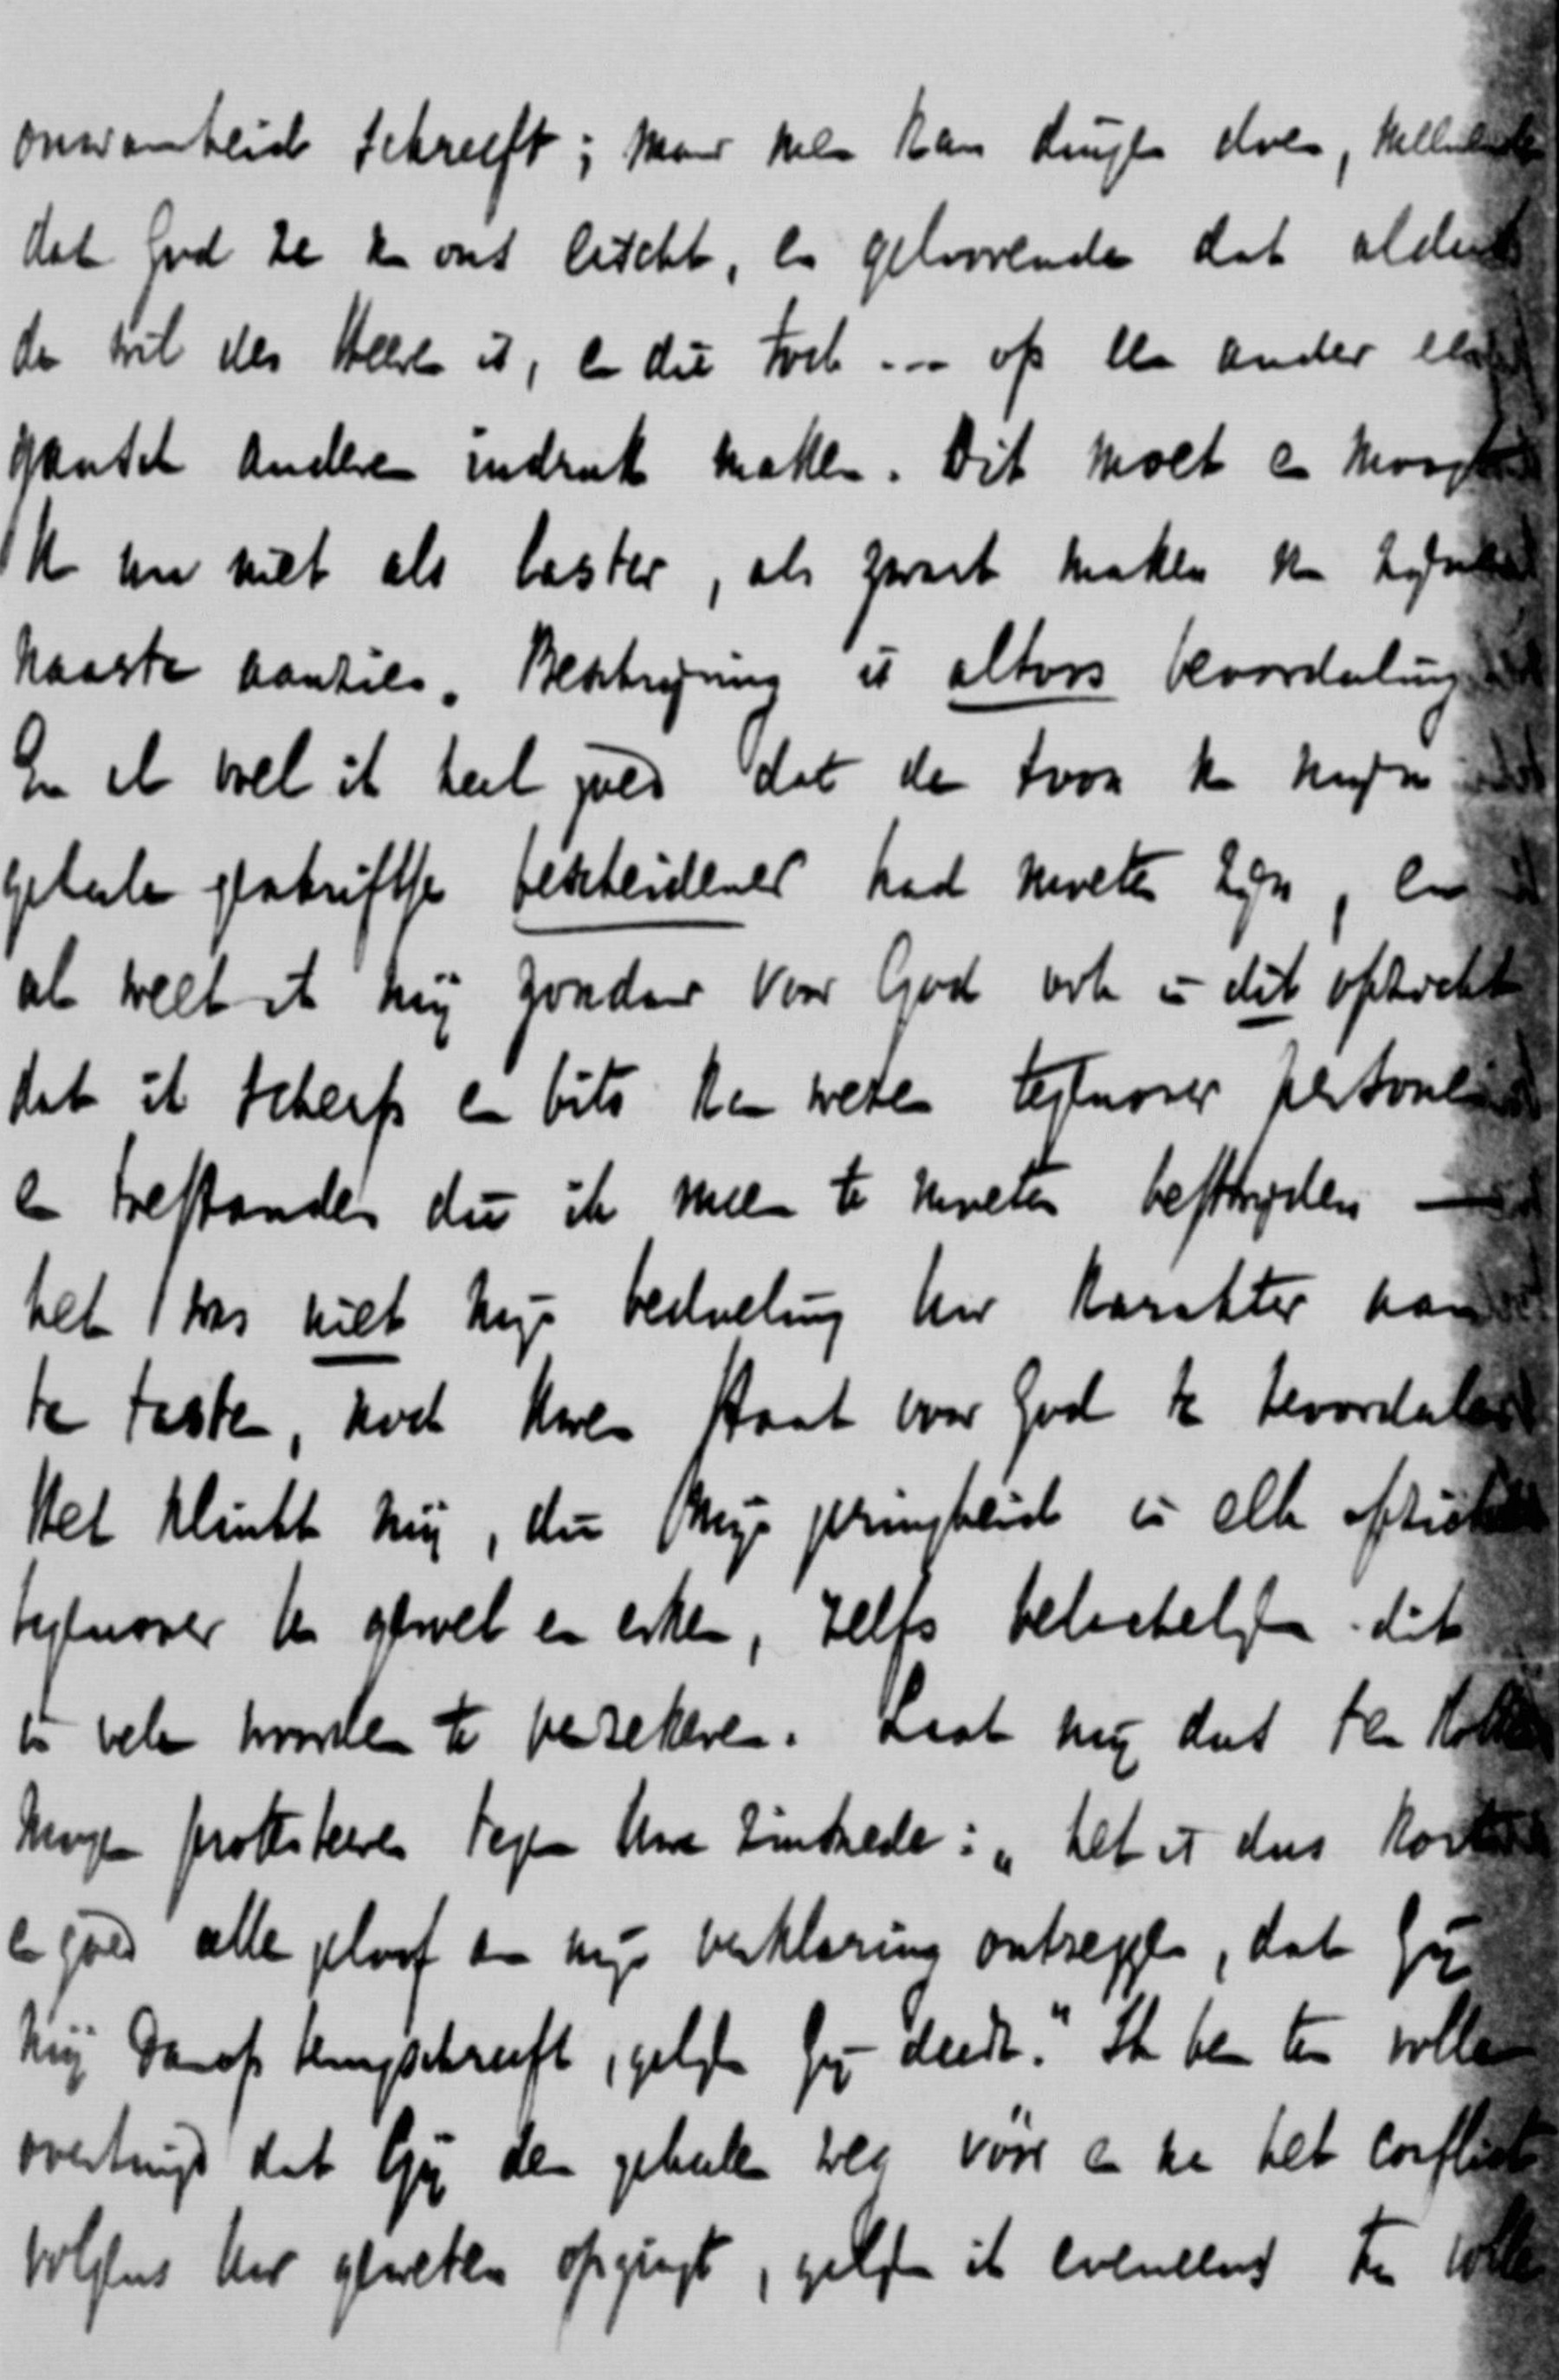 onwaarheid schreeft; maar men kan dingen doen, meenende
dat God ze van ons eischt, en geloovende dat aldus
de wil des Heeren is, en die toch ... op een ander een
gansch anderen indruk maken. Dit moet en moogt
U nu niet als laster, als zwart maken van Uw
naaste aanzien. Bestrijding is altoos beoordeeling
En ik wil ik heel goed dat de toon van mijn
geheele geschrift bescheidener had moeten zijn, en
ook weet ik mij zondaar voor God ook in dit opzicht
dat ik scherp en bits kan wezen tegenover personen
en toestanden die ik meen te moeten bestrijden —
het was niet mijn bedoeling Uw karakter aan
te tasten, noch Uwen staat voor God te beoordeelen
Het klinkt mij, die mijn geringheid in elk opzicht
tegenover U gevoel en erken, zelfs belachelijk dit
in vele woorden te verzekeren. Laat mij dus ten slotte
mogen protesteeren tegen Uwe zinsnede: „het is dus kort
en goed alle geloof aan mijn verklaring ontzeggen, dat Gij
mij daarop terugschreeft, gelijk Gij deedt." Ik ben ten volle
overtuigd dat Gij den geheelen weg vóór en na het conflict
volgens Uw geweten opgingt, gelijk ik eveneens ten volle